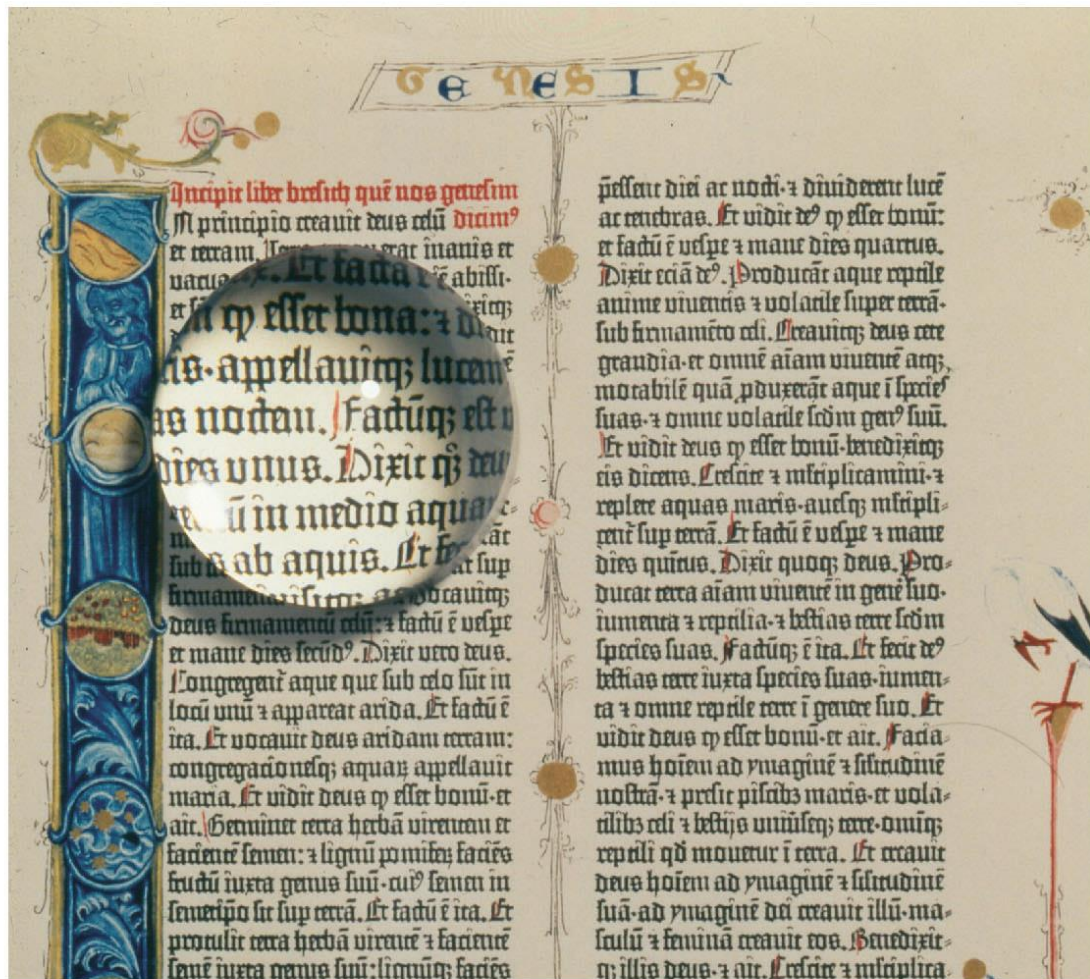 GENESIS
Incipit liber bresich quē nos genesim
IN principio creavit deus celū dicimꝰ
et terram. erat inanis et
vacua
Et facta ē abissi·
et
ꝙ esset bona: ⁊
appellavitqꝫ lucem
as noctem. Factūqꝫ est
dies unus. Dixit qꝫ deus
ū in medio aqua
s ab aquis. Et
sub sup
firmamen vocavitqꝫ
deus firmamentū celū: ⁊ factū ē vespe
et mane dies secūdꝰ. Dixit vero deus.
Congregent̄ aque que sub celo sūt in
locū unū ⁊ appareat arida. Et factū ē
ita. Et vocavit deus aridam terram:
congregacionesqꝫ aquaꝝ appellavit
maria. Et vidit deus ꝙ esset bonū·et
ait. Germinet terra herbā virentem et
facientē semen: ⁊ lignū pomifeꝝ faciēs
fructū iuxta genus suū·cuiꝰ semen in
semetip̄o sit sup terrā. Et factū ē ita. Et
protulit terra herbā virentē ⁊ facientē
semē iuxta genus suū: lignūqꝫ faciēs
p̄essent diei ac nocti·⁊ dividerent lucē
ac tenebras. Et vidit deꝰ ꝙ esset bonū:
et factū ē vespe ⁊ mane dies quartus.
Dixit eciā deꝰ. Producāt aque reptile
anime viventis ⁊ volatile super terrā·
sub firmamēto celi. Creavitqꝫ deus cete
grandia·et omnē aīam viventē atqꝫ
motabilē quā ꝓduxerāt aque ī species
suas·⁊ omne volatile scdm genꝰ suū.
Et vidit deus ꝙ esset bonū·benedixitqꝫ
eis dicens. Crescite ⁊ mltiplicamini·⁊
replete aquas maris·avesqꝫ mltipli-
cent̄ sup terrā. Et factū ē vespe ⁊ mane
dies quītus. Dixit quoqꝫ deus. Pro-
ducat terra aīam viventē in genē suo·
iumenta ⁊ reptilia·⁊ bestias terre scdm
species suas. Factūqꝫ ē ita. Et fecit deꝰ
bestias terre iuxta species suas·iumen-
ta ⁊ omne reptile terre ī genere suo. Et
vidit deus ꝙ esset bonū·et ait. Facia-
mus hoīem ad ymaginē ⁊ silitudinē
nostrā·⁊ presit piscibꝫ maris·et vola-
tilibꝫ celi ⁊ bestijs universeqꝫ terre·omniqꝫ
reptili qd movetur ī terra. Et creavit
deus hoīem ad ymaginē ⁊ silitudinē
suā·ad ymaginē dei creavit illū·ma-
sculū ⁊ feminā creavit eos. Benedixit-
qꝫ illis deus·⁊ ait. Crescite ⁊ mltiplica